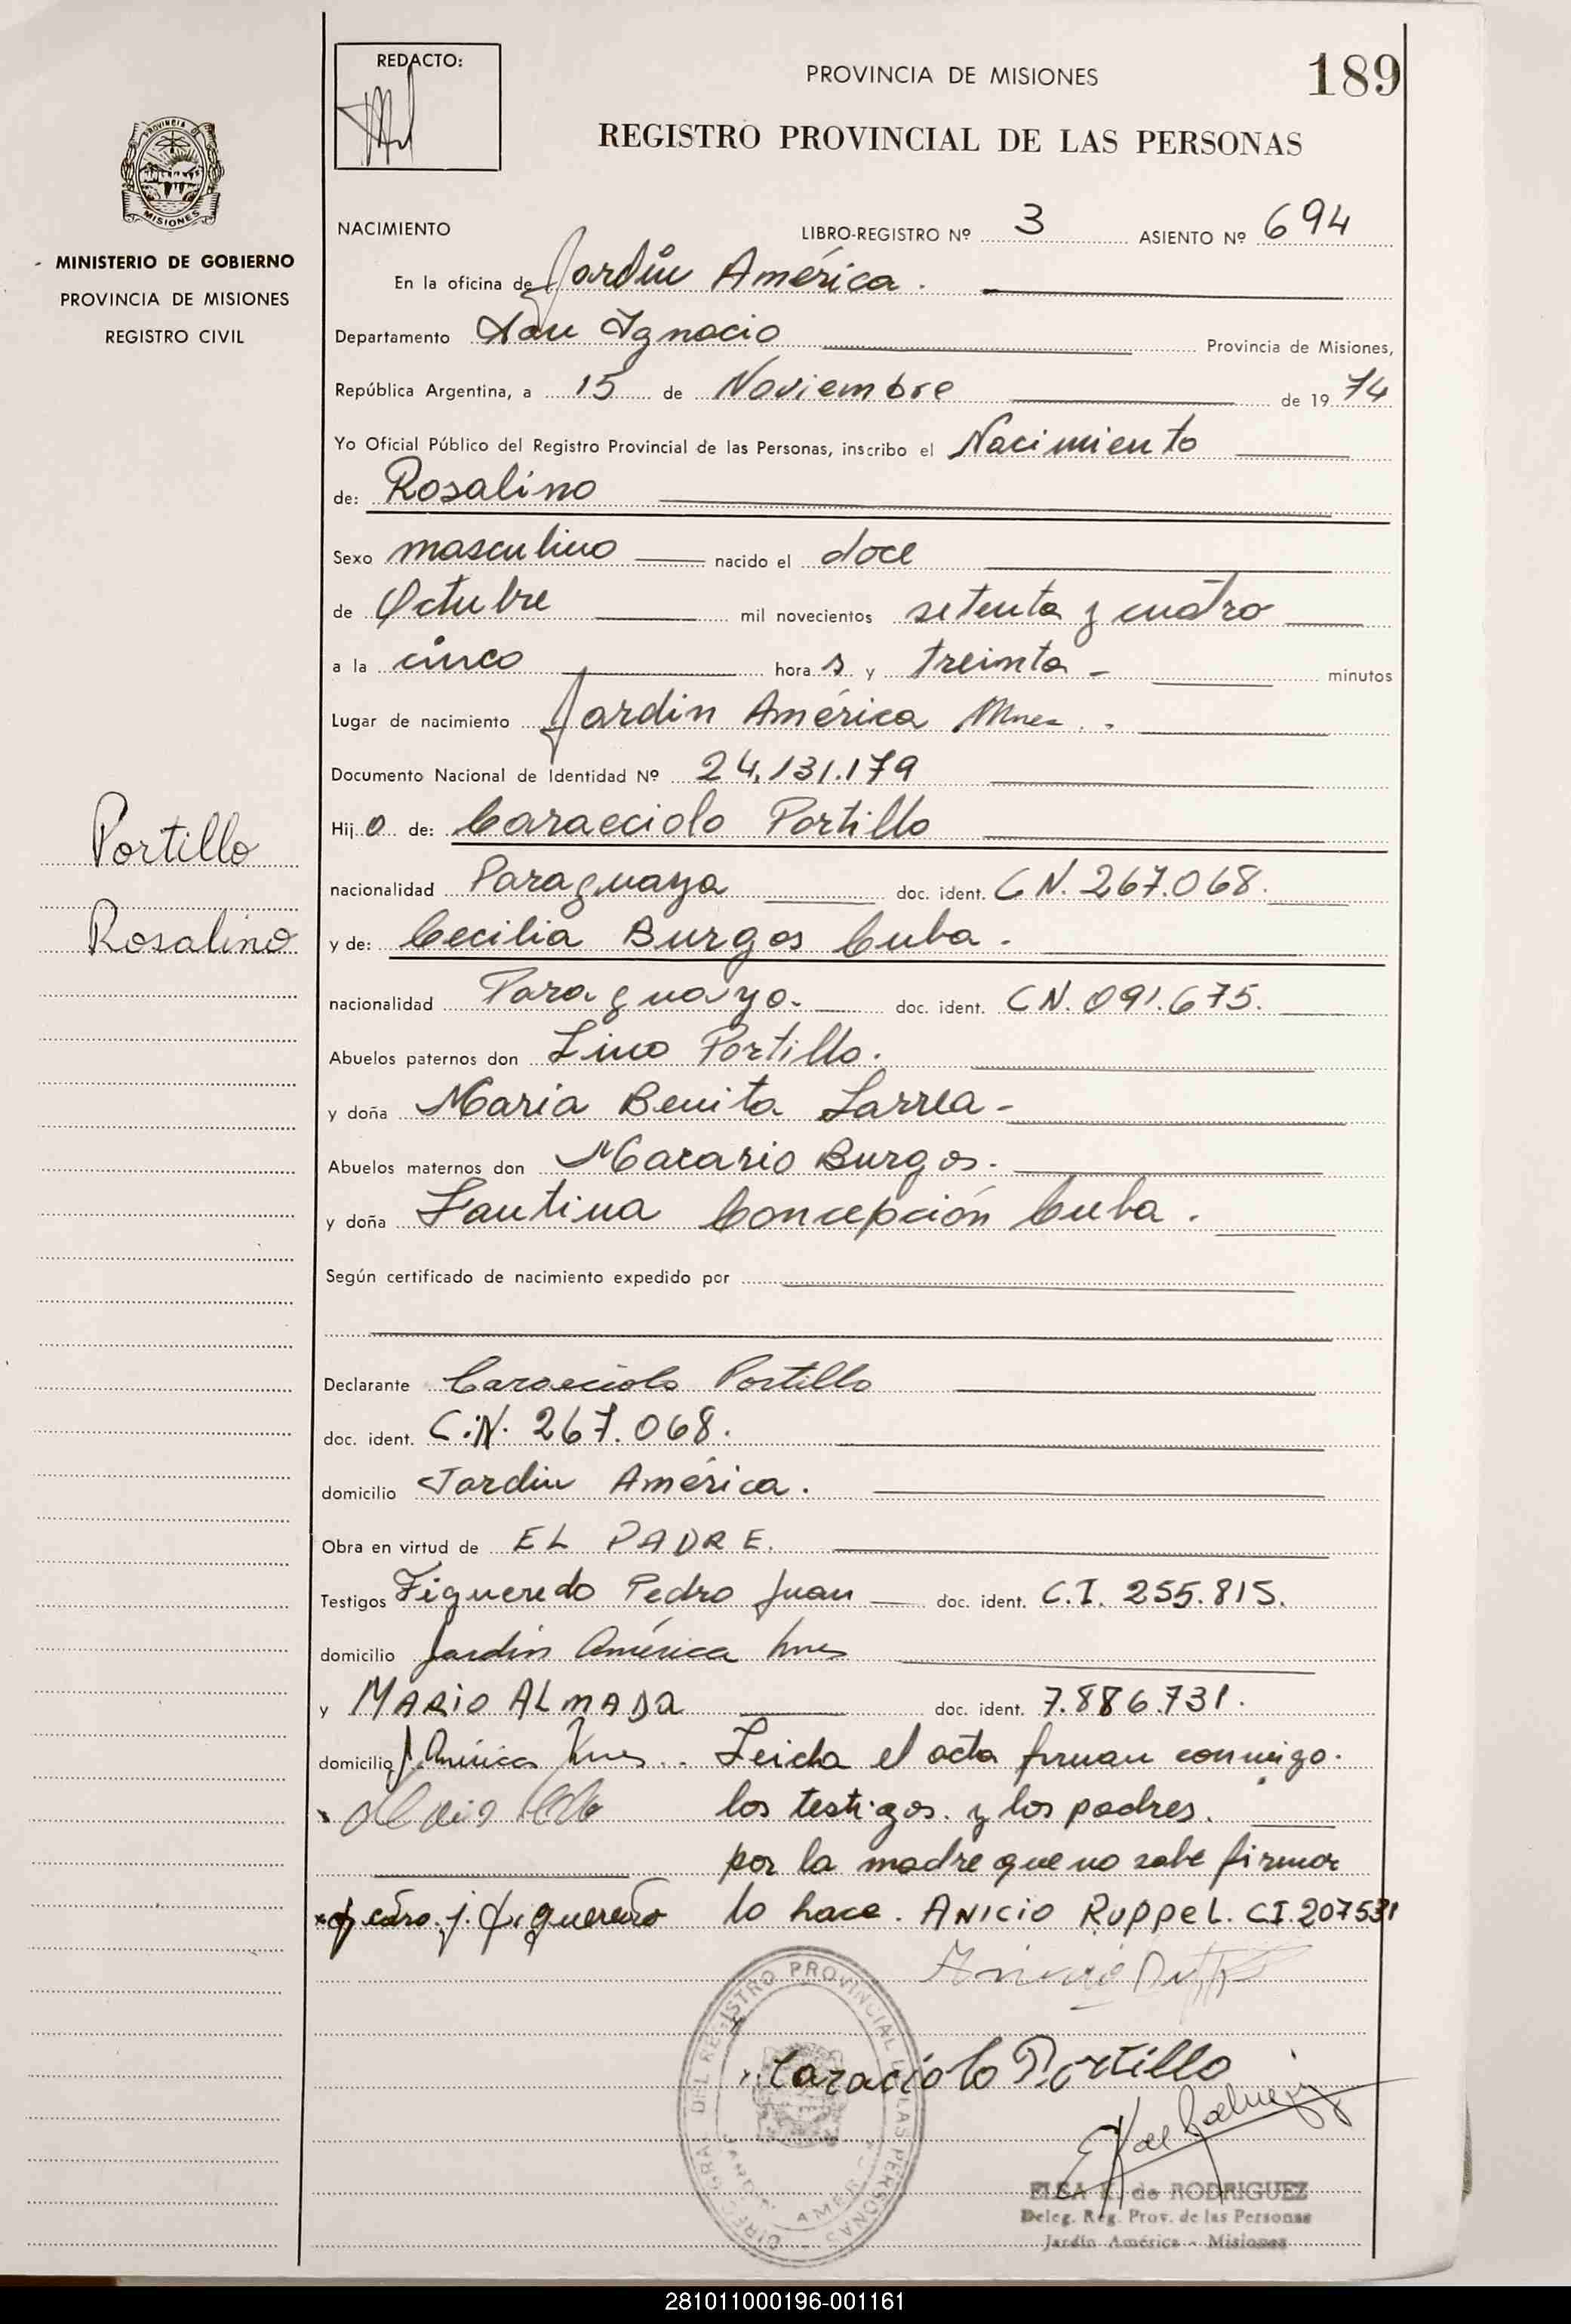 REDACTO:
PROVINCIA DE MISIONES
189
REGISTRO PROVINCIAL DE LAS PERSONAS
PROVINCIA
MISIONES
MINISTERIO DE GOBIERNO
PROVINCIA DE MISIONES
REGISTRO CIVIL
NACIMIENTO LIBRO-REGISTRO Nº 3 ASIENTO Nº 694
En la oficina de Jardín América.
Departamento San Ignacio Provincia de Misiones,
República Argentina, a 15 de Noviembre de 1974
Yo Oficial Público del Registro Provincial de las Personas, inscribo el Nacimiento
de: Rosalino
Sexo masculino nacido el doce
de Octubre mil novecientos setenta y cuatro
a la cinco hora s y treinta - minutos
Lugar de nacimiento Jardin América Mnes.
Documento Nacional de Identidad Nº 24.131.179
Hij o de: Caraeciolo Portillo
nacionalidad Paraguaya doc. ident. CN. 267.068.
y de: Cecilia Burgos Cuba.
nacionalidad Paraguaya. doc. ident. CN. 091.675.
Portillo
Rosalino
Abuelos paternos don Lino Portillo.
y doña Maria Benita Larrea-
Abuelos maternos don Macario Burgos.
y doña Fautina Concepción Cuba.
Según certificado de nacimiento expedido por
Declarante Caraeciolo Portillo
doc. ident. C.N. 267.068.
domicilio Jardin América.
Obra en virtud de EL PADRE.
Testigos Figueredo Pedro Juan doc. ident. C.I. 255.815.
domicilio Jardin América Mnes
y MARIO ALMADA doc. ident. 7.886.731.
domicilio J. América Mnes.. Leida el acta firman conmigo.
los testigos. y los padres.
por la madre que no sabe firmar
lo hace. ANICIO RUPPEL. CI.207531
Caraciolo Portillo
DEL REGISTRO PROVINCIAL DE LAS PERSONAS
ELSA K. de RODRIGUEZ
Deleg. Reg. Prov. de las Personas
Jardín América - Misiones
281011000196-001161